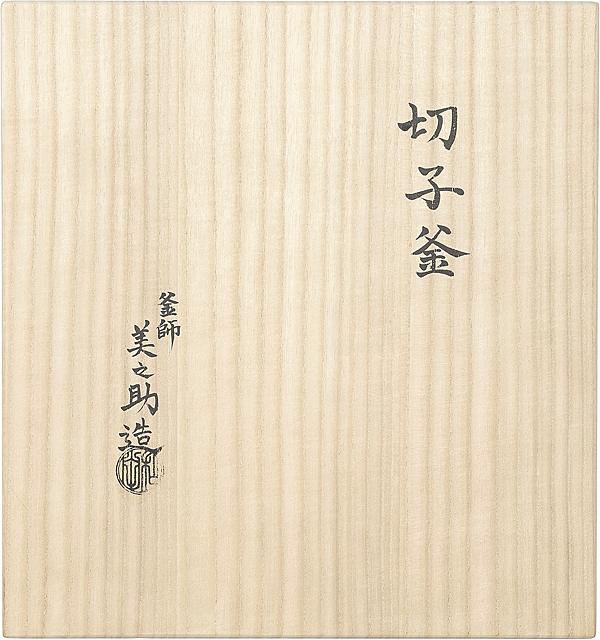 切子釜
釜師
美之助造